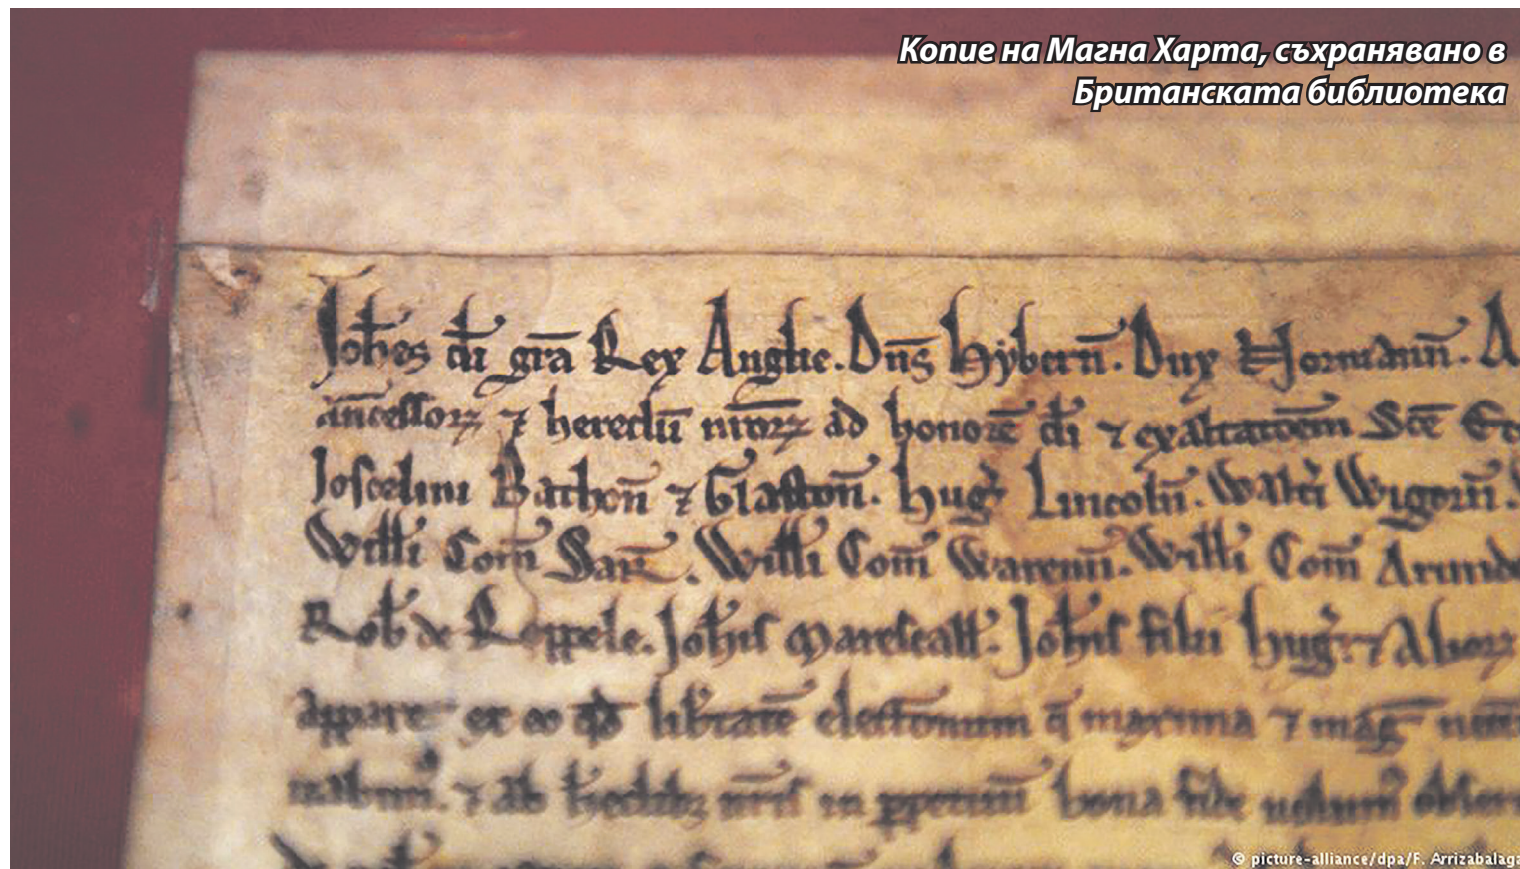 Копие на Магна Харта, съхранявано в
Британската библиотека
Johes di gra Rex Anglie. Dns Hybern. Dux Normann. A
ancessorz ⁊ heredum nrorz ad honorem di ⁊ exaltatoem Sce Ec
Joscelini Bathon ⁊ Glaston. Hug Lincoln. Walti Wigorn.
Willi Com Sarr. Willi Com Warenn. Willi Com Arunde
Rob de Roppele. Johis Marescall. Johis filii Hug. ⁊ Aliorz
appare ex eo qd libtate electionum q maxima ⁊ mag
⁊ ab hedibz nris in ppetuum bona fide
© picture-alliance/dpa/F. Arrizabalaga